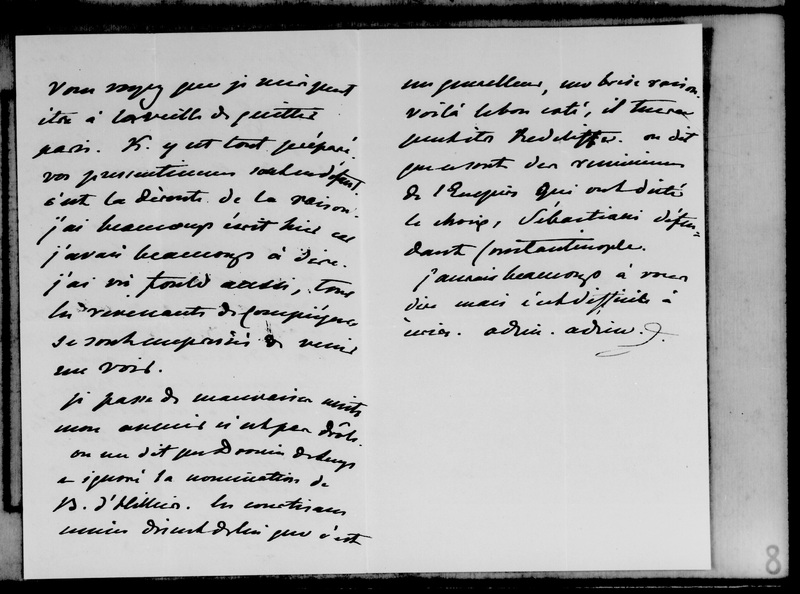 Vous voyez que je suis peut
être à la veille de quitter
paris. K. y est tout préparé.
vos pressentiments
c'est la déroute de la raison.
j'ai beaucoup écrit hier car
j'avais beaucoup à dire.
j'ai vu fould aussi, tous
les revenants de Compiègne
se sont empressés de venir
me voir.
je passe de mauvaises nuits
mon avenir n'est pas drôle.
on me dit que Drouin de Lhuys
a ignoré la nomination de
B. d'Hilliers. les courtisans
disent de lui que c'est
un querelleur, un brise raison.
voilà le bon côté, il tuera
peut être Redcliffe. on dit
que ce sont des réminiscences
de l'Empire qui ont dicté
le choix, Sébastiani défen=
dant Constantinople.
j'aurais beaucoup à vous
dire mais c'est difficile à
écrire. adieu. adieu.
8